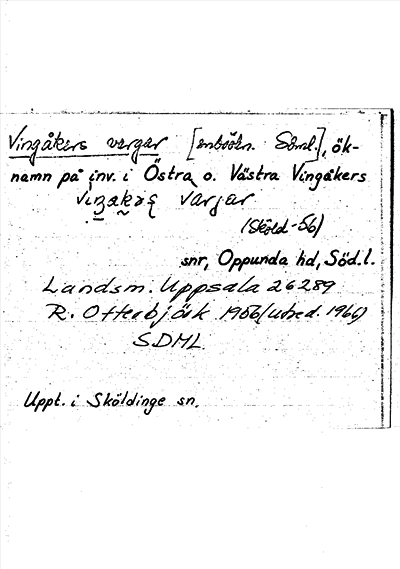 Vingåkers vargar [inböökn. Söml.], ök-
namn på inv. i Östra o. Västra Vingåkers
vargar
(Sköld-56)
snr, Oppunda hd, Söd.l.
Landsm. Uppsala 26289
R. Otterbjörk 1956 (utred. 1966)
SDML
Uppt. i Sköldinge sn.